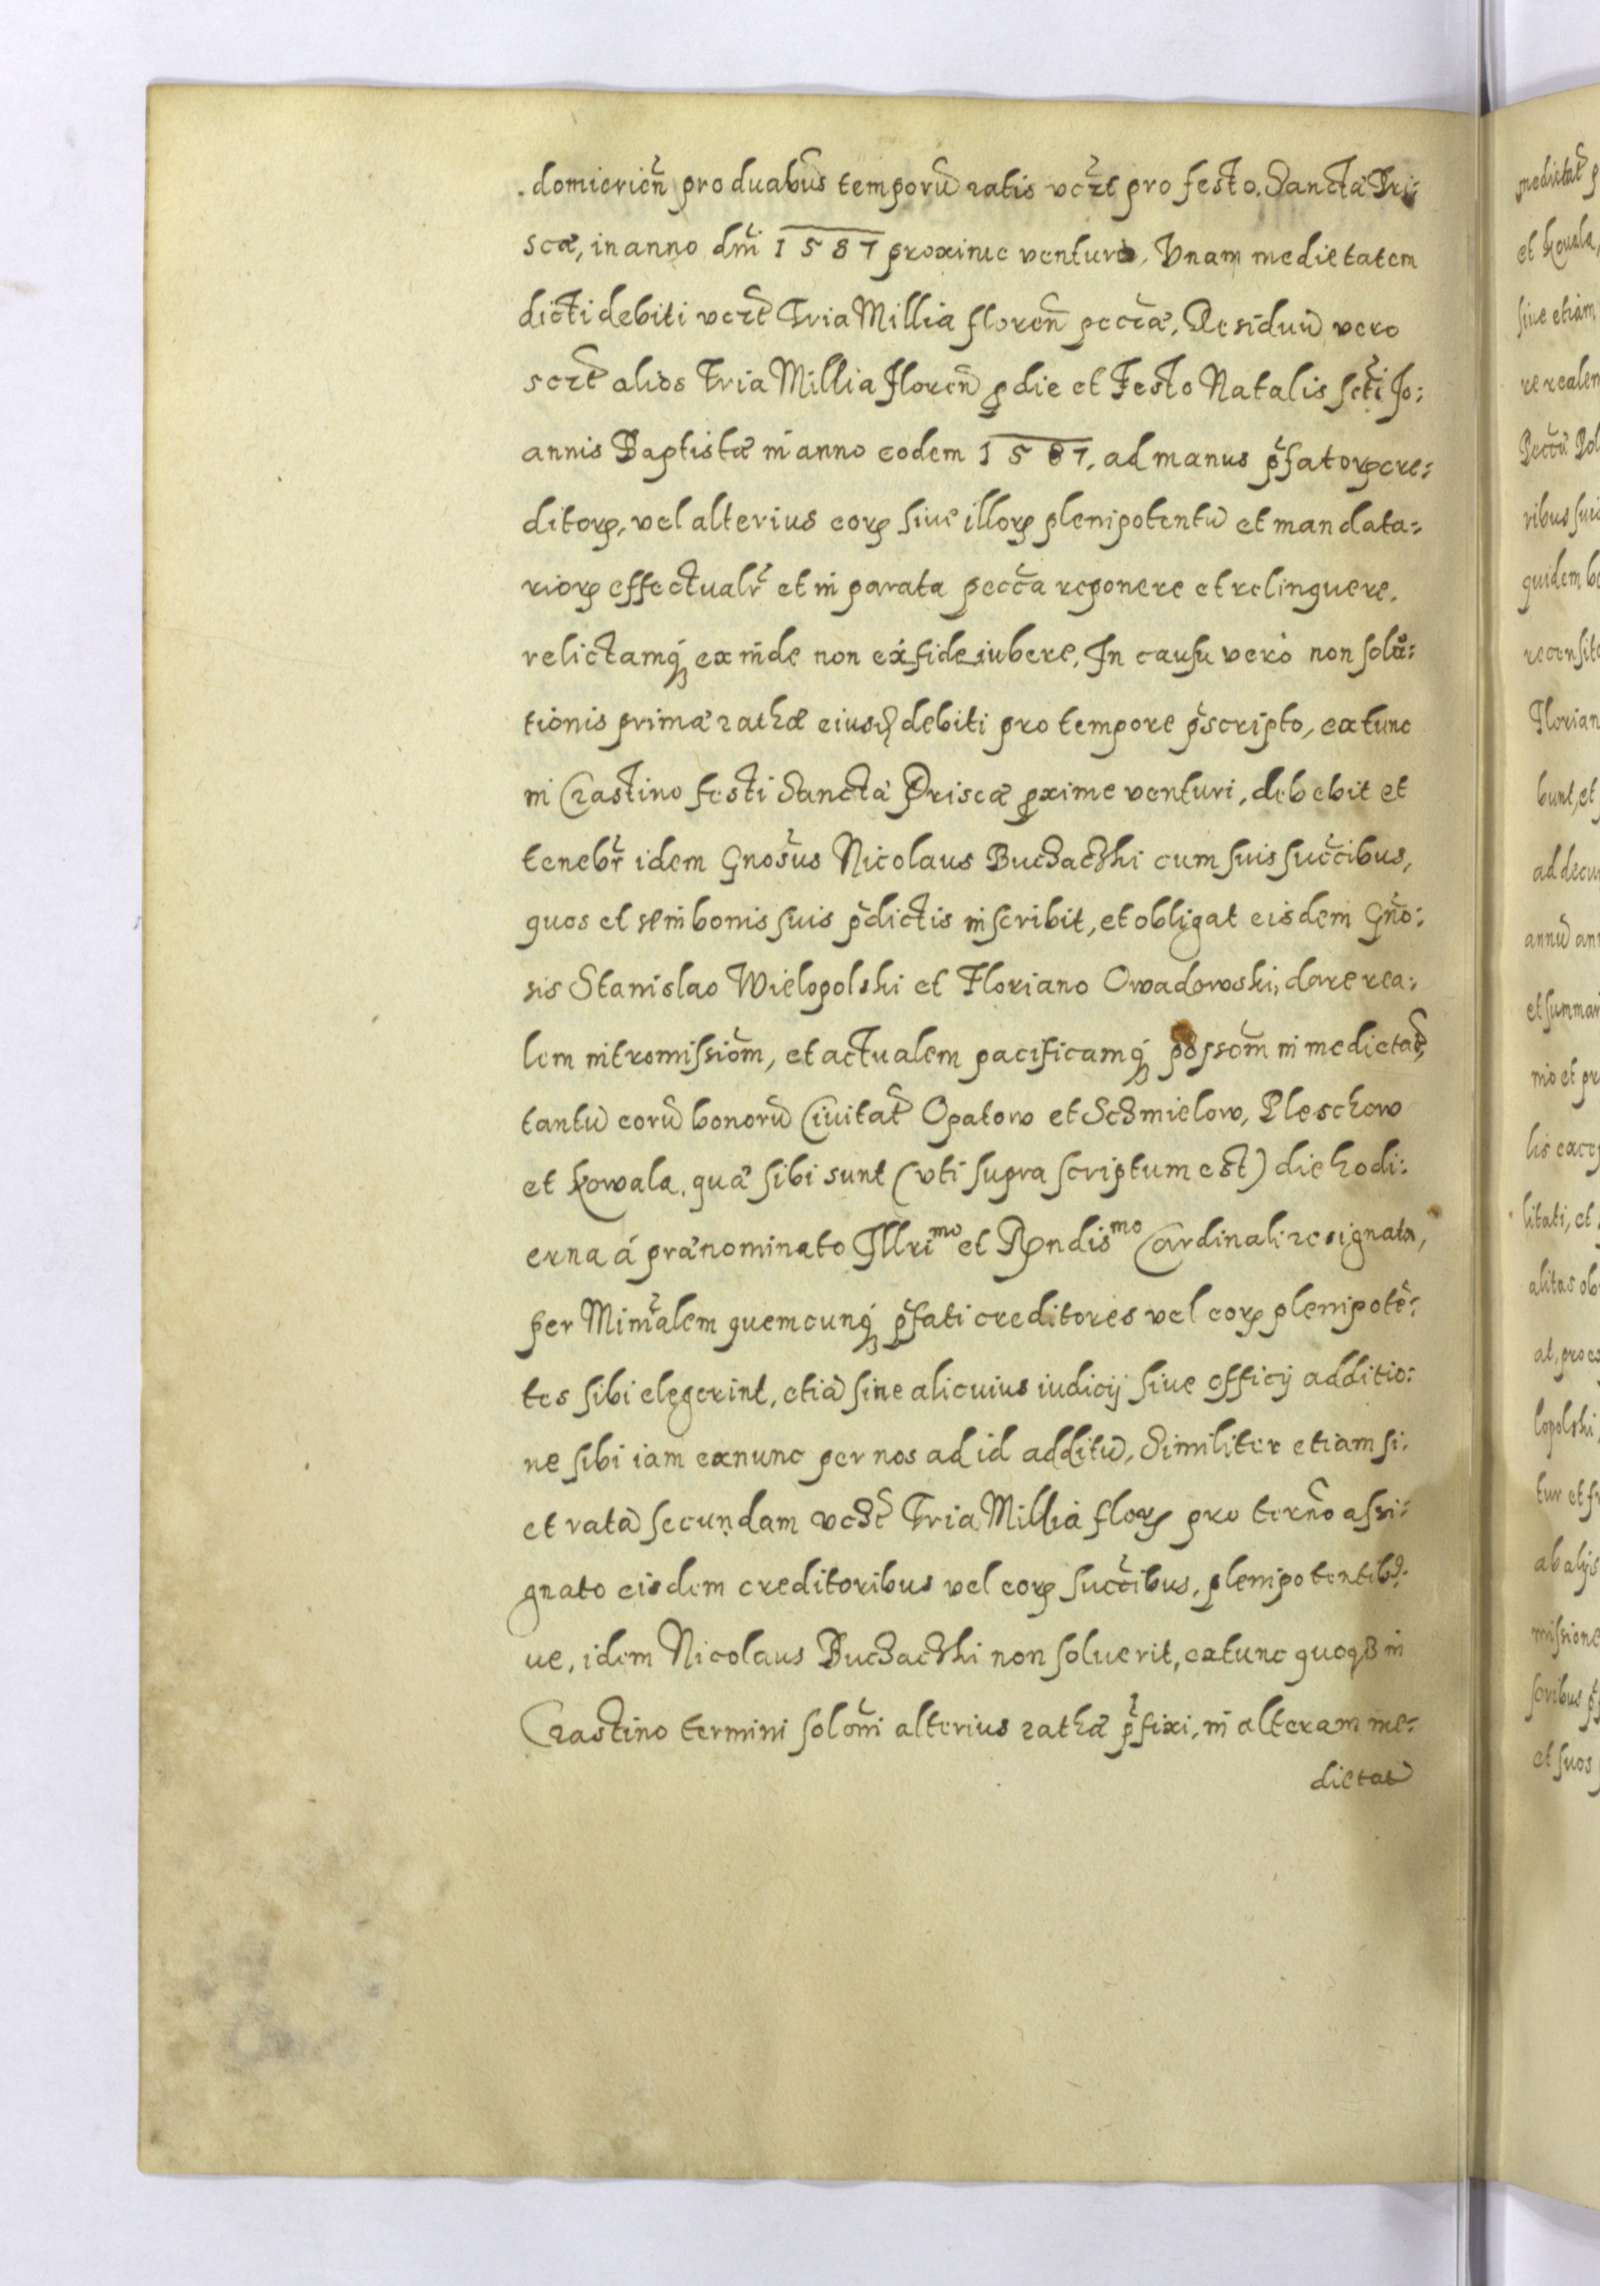 domirien̄ pro duabus temporū ratis vcz̄t pro festo. Sanctæ Pri:
scæ, in anno dm̄i 1587 proxime venturo, Vnam medietatem
dicti debiti vczt̄ Tria Millia floren̄ pecc̄æ, Residuū vero
sczt̄ alios Tria Millia floren̄ ꝓ die et Festo Natalis sc̄ti Jo:
annis Baptistæ in anno eodem 1587, ad manus p̄fatorꝝ cre:
ditorꝝ, vel alterius eorꝝ siue illorꝝ plenipotentū et mandata:
riorꝝ effectualr̄ et in parata pecc̄a reponere et relinquere,
relictamqꝫ exinde non exfideiubere, In causu verò non solu:
tionis primæ rathæ eiusdꝫ debiti pro tempore p̄scripto, extunc
in Crastino festi Sanctæ Priscæ ꝓxime venturi, debebit et
tenebr̄ idem Gnosus Nicolaus Buczaczki cum suis succ̄ibus,
quos et se in bonis suis p̄dictis inscribit, et obligat eisdem Gno:
sis Stanislao Wielopolski et Floriano Owadowski, dare rea:
lem intromissiom̄, et actualem pacificamqꝫ possom̄ in medietat̄,
tantū eorū bonorū Ciuitat̄ Opatow et Sczmielow, Pleschow
et Kowala, quæ sibi sunt (vti supra scriptum est) die hodi:
erna á prænominato Illrimo et Rndismo Cardinali resignata,
per Minr̄alem quemcunqꝫ p̄fati creditores vel eorꝝ plenipotē:
tes sibi elegerint, etiā sine alicuius iudicij siue officij additio:
ne sibi iam exnunc per nos ad id additū, Similiter etiam si:
et ratā secundam vczt̄ Tria Millia florꝝ pro tern̄o assi:
gnato eisdem creditoribus vel eorꝝ succ̄ibus, plenipotentibꝰ:
ue, idem Nicolaus Buczaczki non soluerit, extunc quoqꝫ in
Crastino termini solom̄i alterius rathæ p̄fixi, in alteram me:
dietat̄